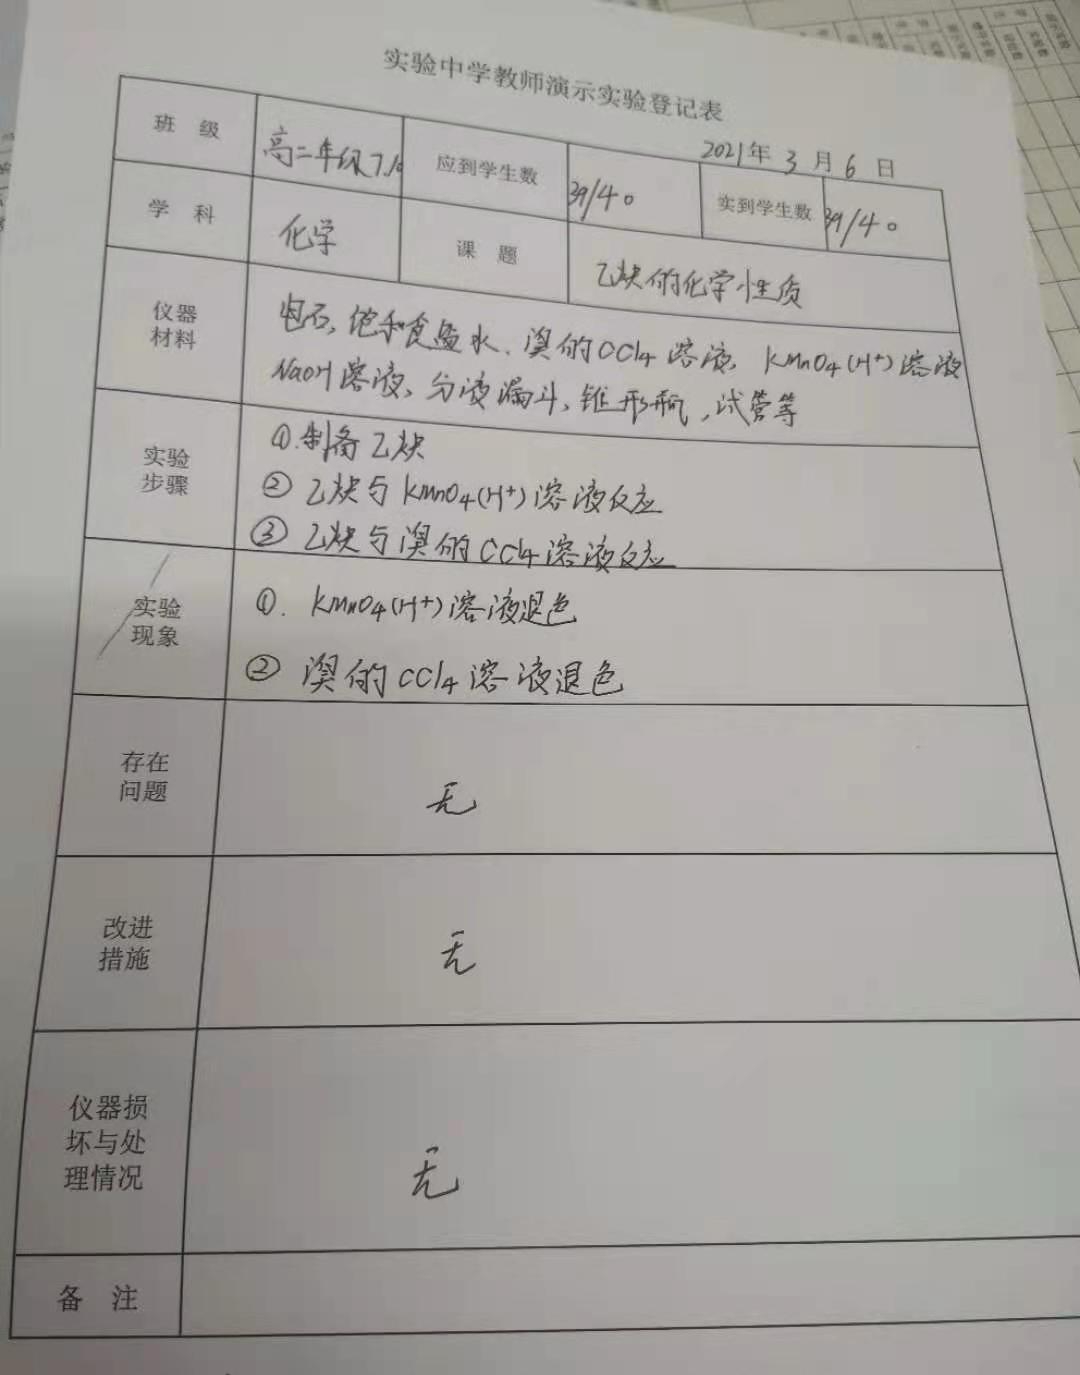 实验中学教师演示实验登记表
2021年 3 月 6 日
班 级 高二年级7/ 应到学生数 39/40 实到学生数 39/40
学 科 化学 课 题 乙炔的化学性质
仪器
材料
电石, 饱和食盐水、溴的CCl4 溶液, KMnO4(H+)溶液
NaOH溶液, 分液漏斗, 锥形瓶, 试管等
实验
步骤
①.制备乙炔
② 乙炔与KMnO4(H+)溶液反应
③ 乙炔与溴的CCl4溶液反应
实验
现象
①. KMnO4(H+)溶液退色
② 溴的CCl4溶液退色
存在
问题
无
改进
措施
无
仪器损
坏与处
理情况
无
备 注